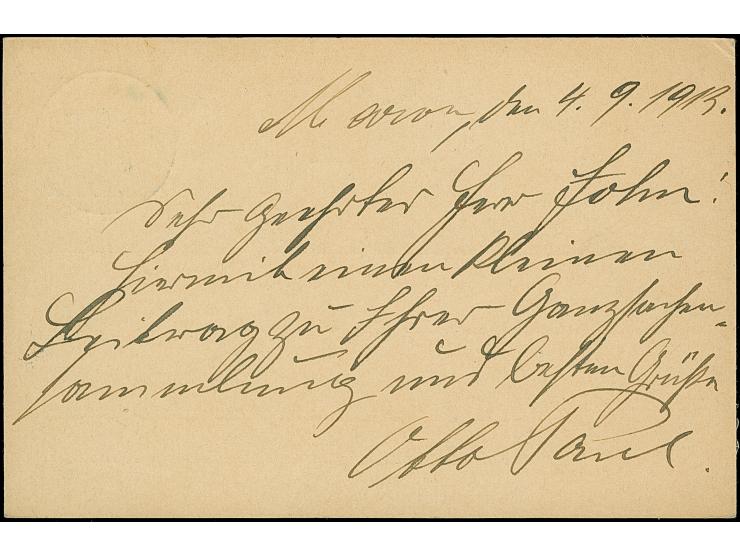 Maron, den 4. 9. 1913.
Sehr geehrter Herr John!
Hiermit einen kleinen
Beitrag zu Ihrer Ganzsachen-
sammlung und besten Grüßen
Otto Paul.